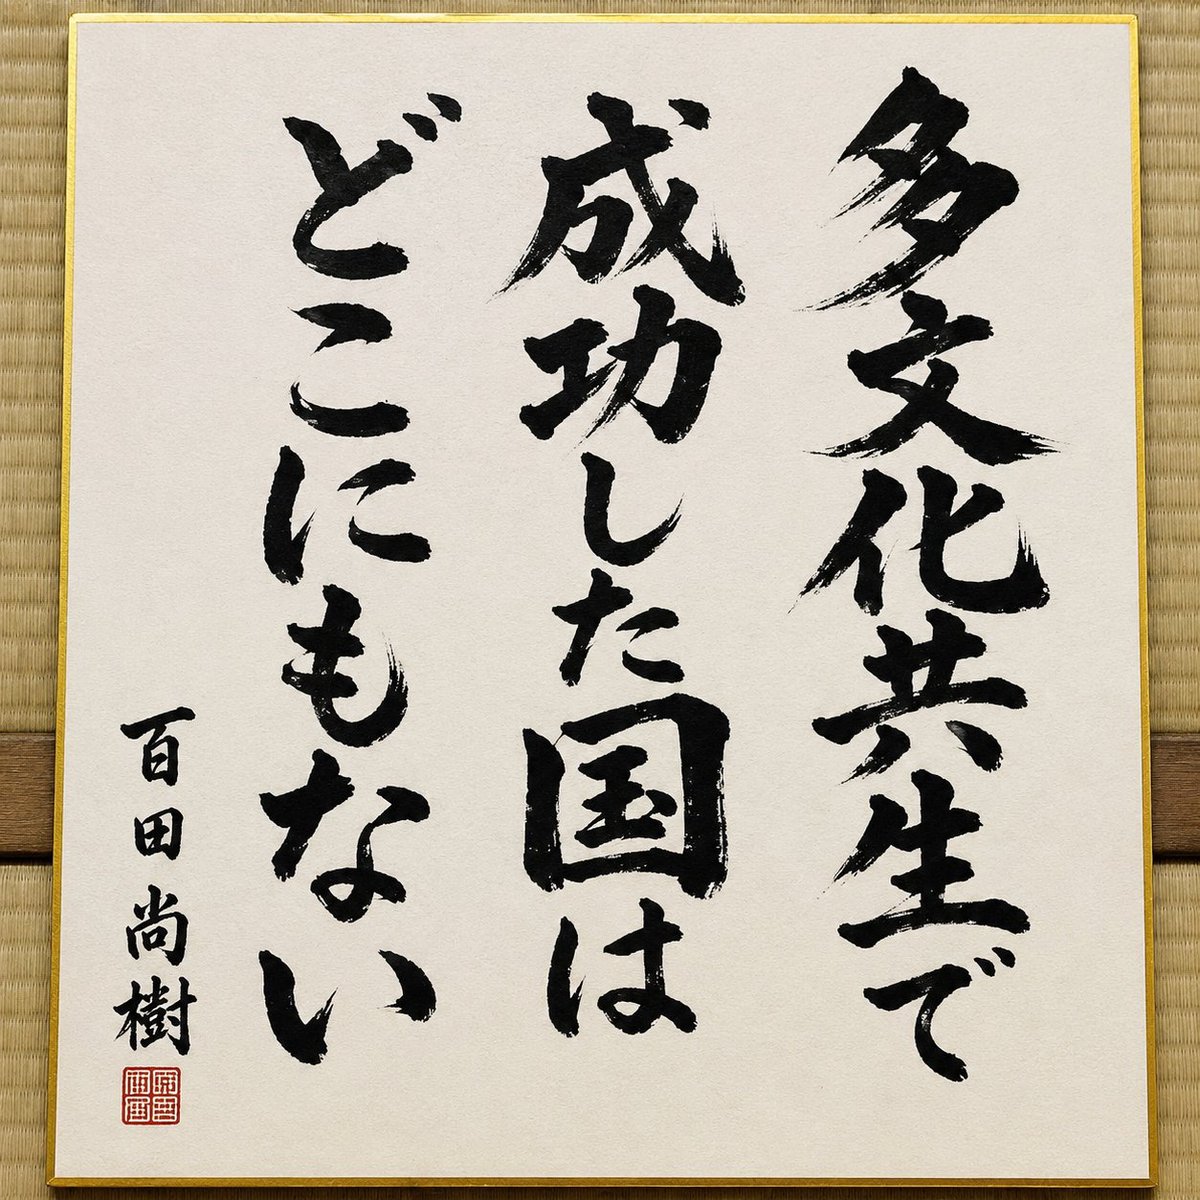 多文化共生で
成功した国は
どこにもない
百田尚樹